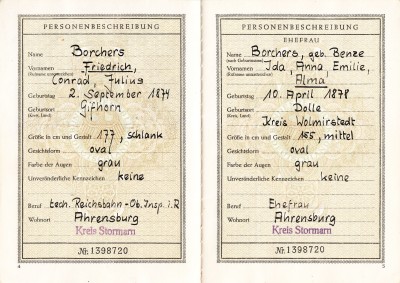 PERSONENBESCHREIBUNG
Name Borchers
Vornamen Friedrich,
(Rufname unterstreichen) Conrad, Julius
Geburtstag 2. September 1874
Geburtsort Gifhorn
(Kreis, Land)
Größe in cm und Gestalt 177, schlank
Gesichtsform oval
Farbe der Augen grau
Unveränderliche Kennzeichen keine
Beruf tech. Reichsbahn-Ob. Insp. i.R
Wohnort Ahrensburg
Kreis Stormarn
Nr. 1398720
4
PERSONENBESCHREIBUNG
EHEFRAU
Name Borchers, geb. Benze
(auch Geburtsname)
Vornamen Ida, Anna, Emilie,
(Rufname unterstreichen) Alma
Geburtstag 10. April 1878
Geburtsort Dolle
(Kreis, Land) Kreis Wolmirstedt
Größe in cm und Gestalt 165, mittel
Gesichtsform oval
Farbe der Augen grau
Unveränderliche Kennzeichen keine
Beruf Ehefrau
Wohnort Ahrensburg
Kreis Stormarn
Nr. 1398720
5